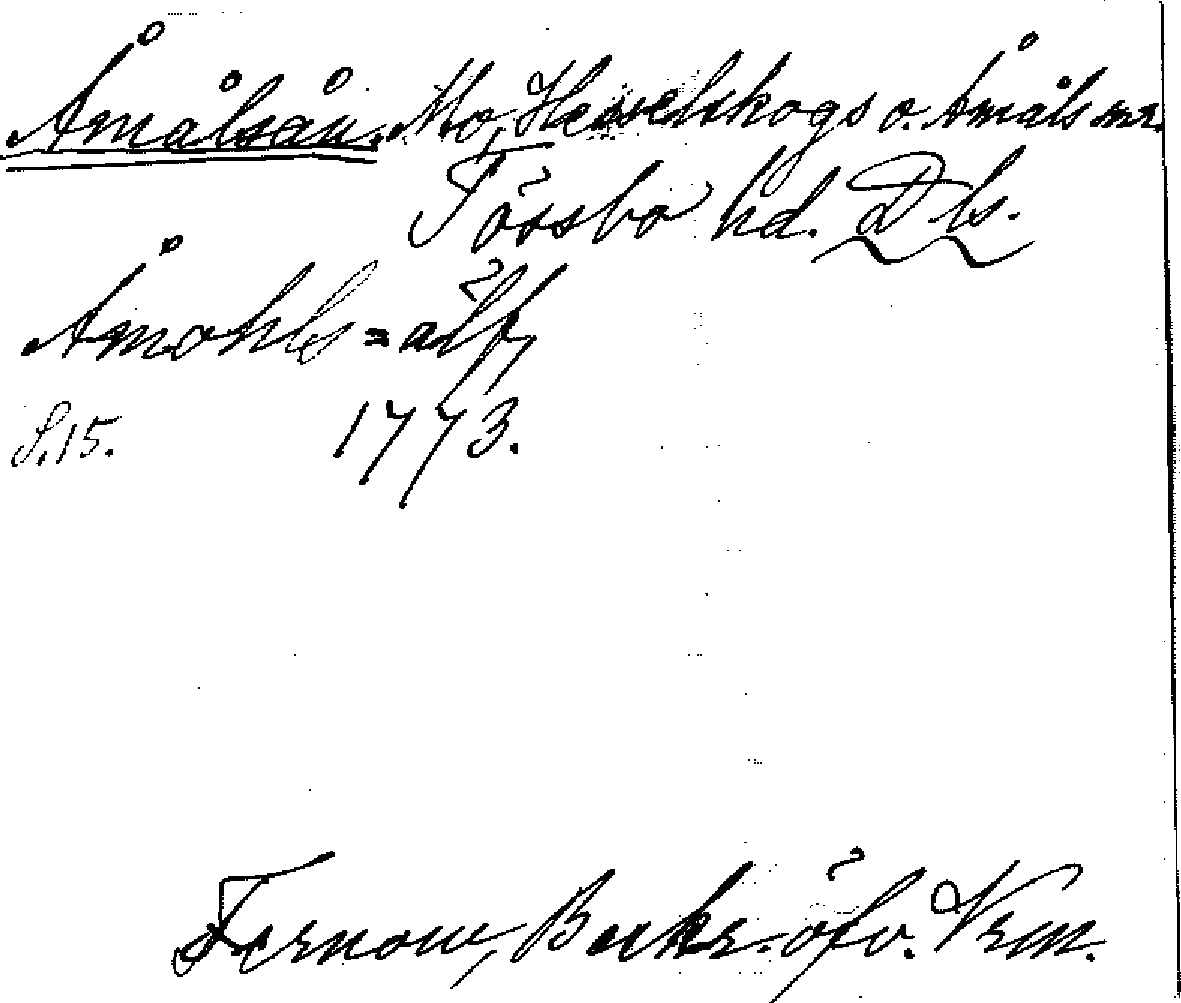 Åmålsån. Mo, Hesselskogs o. Åmåls snr.
Tössbo hd. Dls.
Åmohls=älf,
S.15. 1773.
Fernow, Beskr. öfv. Vrm.